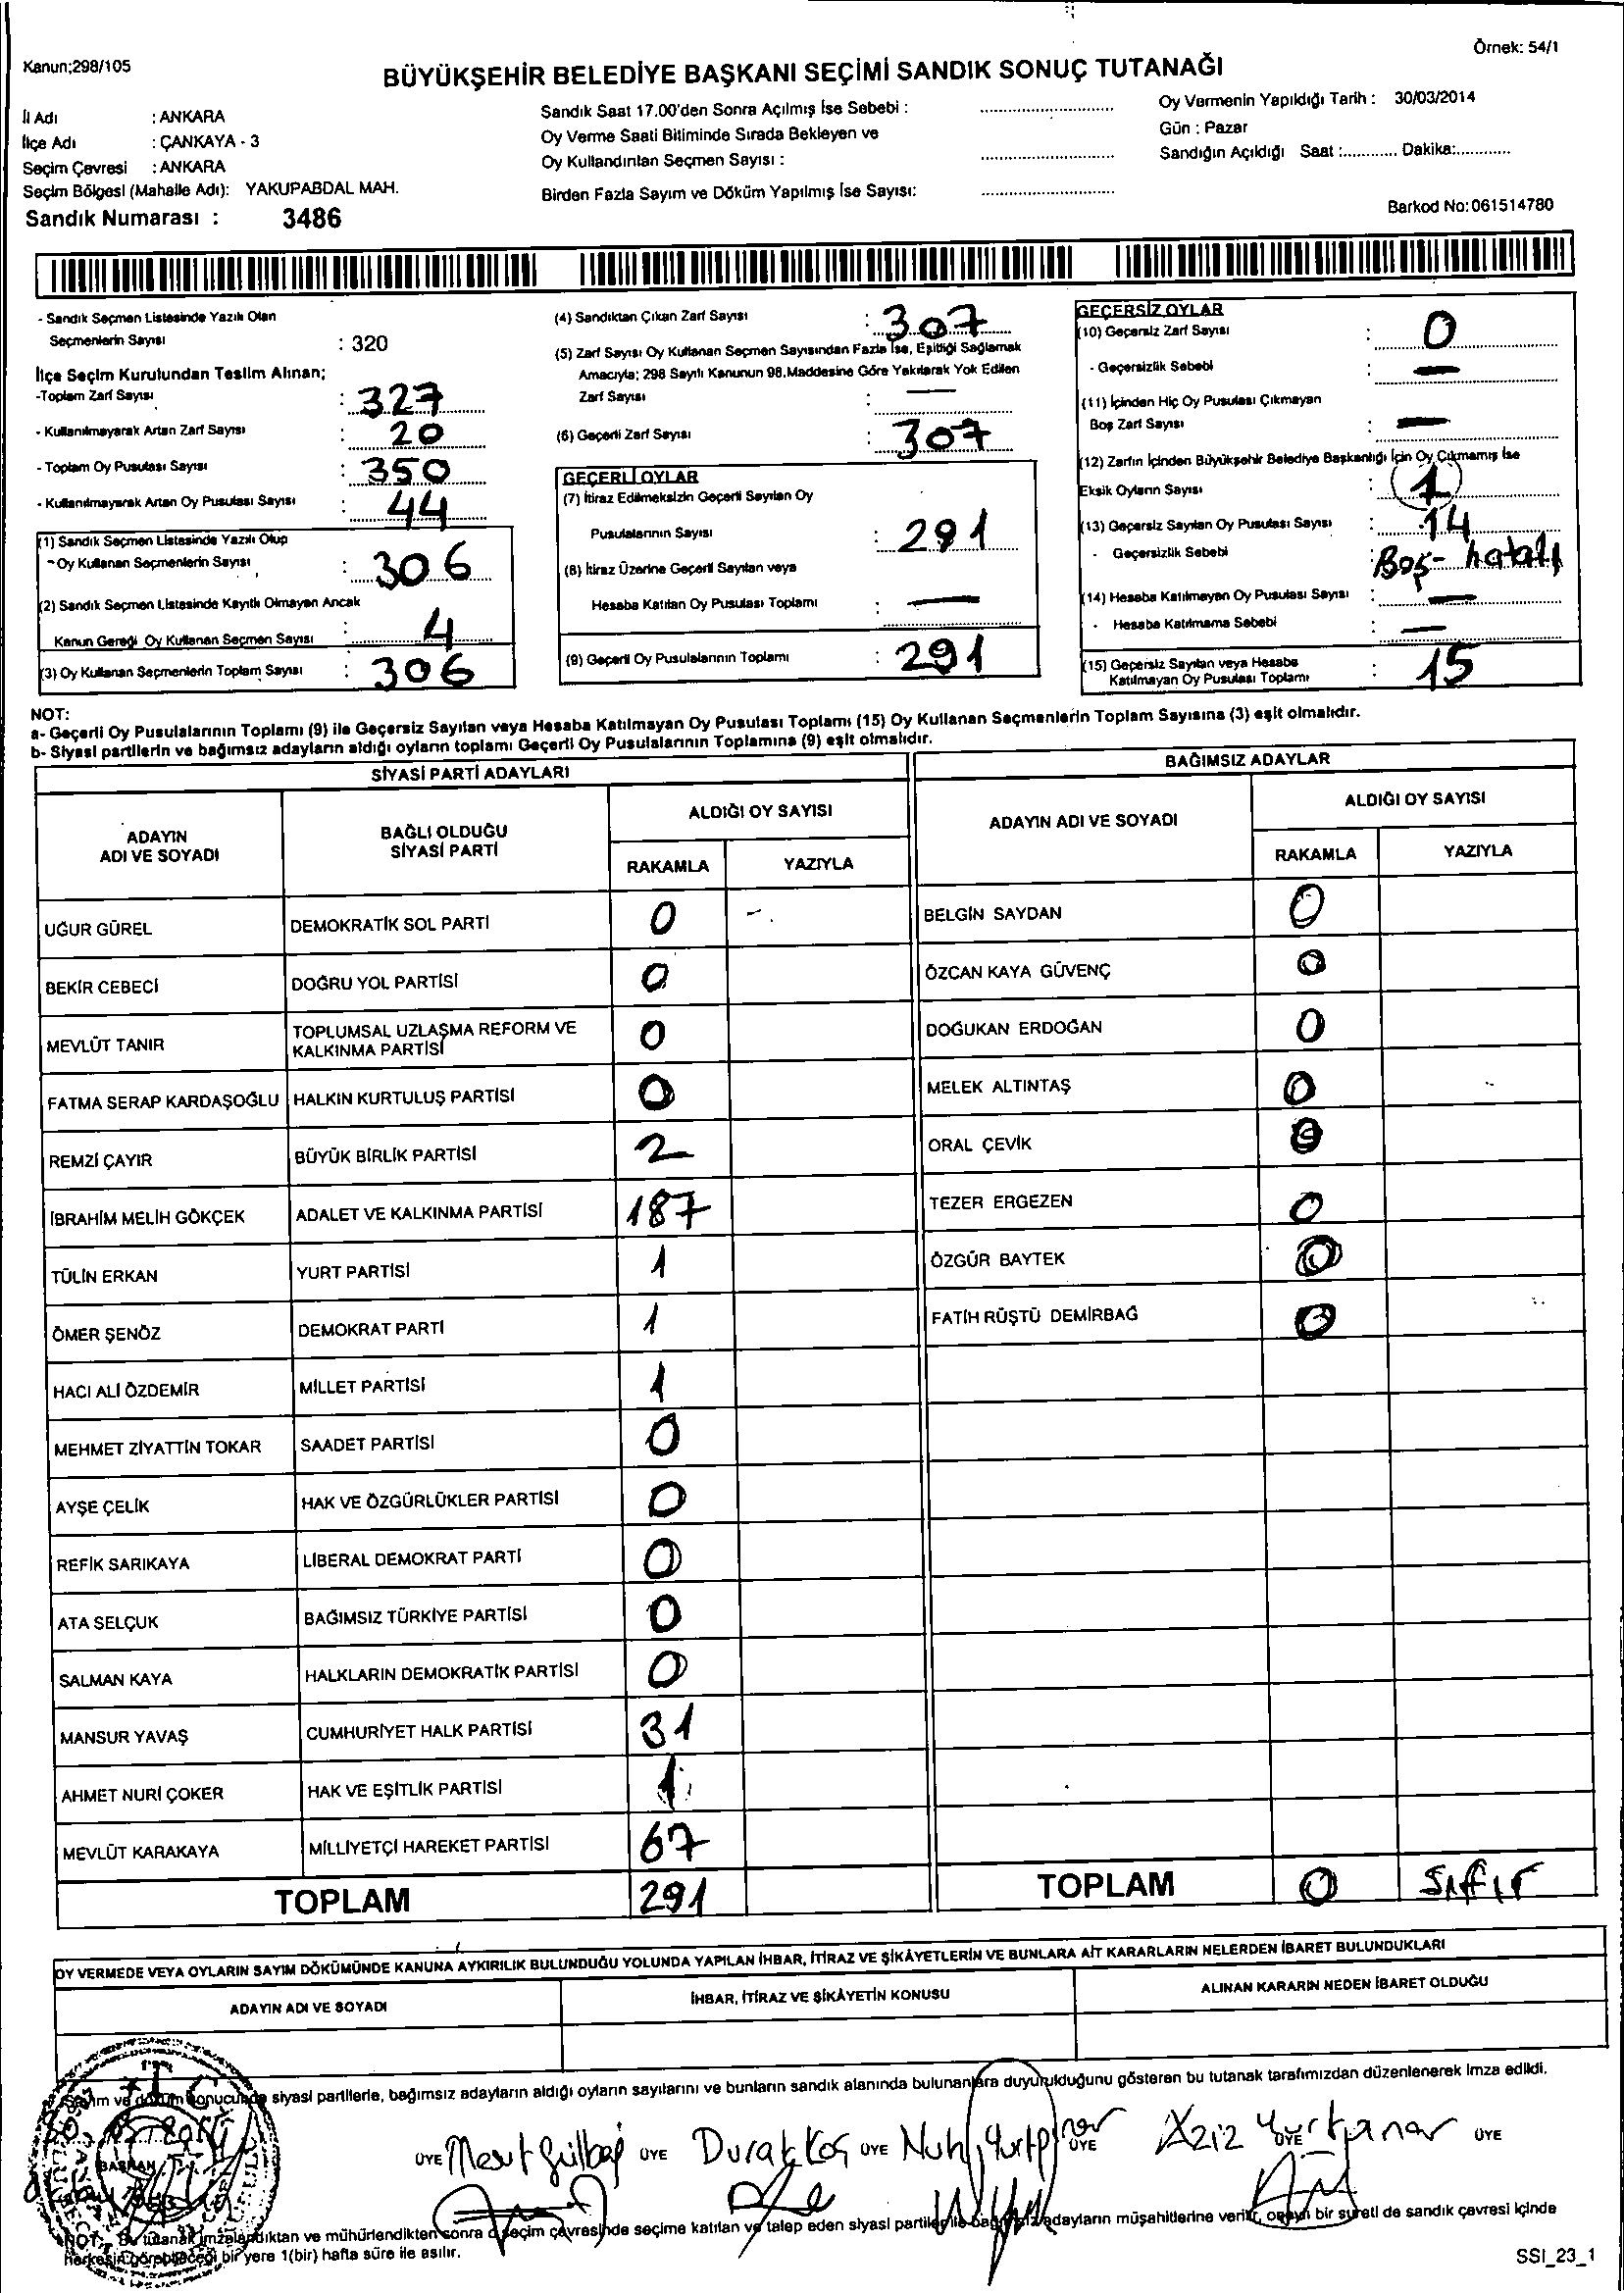 Örnek: 54/1
Kanun;298/105
BÜYÜKŞEHİR BELEDİYE BAŞKANI SEÇİMİ SANDIK SONUÇ TUTANAĞI
İl Adı : ANKARA
İlçe Adı : ÇANKAYA - 3
Seçim Çevresi : ANKARA
Seçim Bölgesi (Mahalle Adı): YAKUPABDAL MAH.
Sandık Numarası : 3486
Sandık Saat 17.00'den Sonra Açılmış İse Sebebi :
Oy Verme Saati Bitiminde Sırada Bekleyen ve
Oy Kullandırılan Seçmen Sayısı :
Birden Fazla Sayım ve Döküm Yapılmış İse Sayısı:
Oy Vermenin Yapıldığı Tarih : 30/03/2014
Gün : Pazar
Sandığın Açıldığı Saat :............ Dakika:............
Barkod No:061514780
- Sandık Seçmen Listesinde Yazılı Olan
Seçmenlerin Sayısı : 320
İlçe Seçim Kurulundan Teslim Alınan;
-Toplam Zarf Sayısı : 327
- Kullanılmayarak Artan Zarf Sayısı : 20
- Toplam Oy Pusulası Sayısı : 350
- Kullanılmayarak Artan Oy Pusulası Sayısı : 44
(1) Sandık Seçmen Listesinde Yazılı Olup
- Oy Kullanan Seçmenlerin Sayısı : 306
(2) Sandık Seçmen Listesinde Kayıtlı Olmayan Ancak
Kanun Gereği Oy Kullanan Seçmen Sayısı : 4
(3) Oy Kullanan Seçmenlerin Toplam Sayısı : 306
(4) Sandıktan Çıkan Zarf Sayısı : 307
(5) Zarf Sayısı Oy Kullanan Seçmen Sayısından Fazla İse, Eşitliği Sağlamak
Amacıyla; 298 Sayılı Kanunun 98.Maddesine Göre Yakılarak Yok Edilen
Zarf Sayısı : —
(6) Geçerli Zarf Sayısı : 307
GEÇERLİ OYLAR
(7) İtiraz Edilmeksizin Geçerli Sayılan Oy
Pusulalarının Sayısı : 291
(8) İtiraz Üzerine Geçerli Sayılan veya
Hesaba Katılan Oy Pusulası Toplamı : —
(9) Geçerli Oy Pusulalarının Toplamı : 291
GEÇERSİZ OYLAR
(10) Geçersiz Zarf Sayısı : 0
- Geçersizlik Sebebi : —
(11) İçinden Hiç Oy Pusulası Çıkmayan
Boş Zarf Sayısı : —
(12) Zarfın İçinden Büyükşehir Belediye Başkanlığı İçin Oy Çıkmamış İse
Eksik Oyların Sayısı : 1
(13) Geçersiz Sayılan Oy Pusulası Sayısı : 14
- Geçersizlik Sebebi : Boş- hatalı
(14) Hesaba Katılmayan Oy Pusulası Sayısı : —
- Hesaba Katılmama Sebebi : —
(15) Geçersiz Sayılan veya Hesaba
Katılmayan Oy Pusulası Toplamı : 15
NOT:
a- Geçerli Oy Pusulalarının Toplamı (9) ile Geçersiz Sayılan veya Hesaba Katılmayan Oy Pusulası Toplamı (15) Oy Kullanan Seçmenlerin Toplam Sayısına (3) eşit olmalıdır.
b- Siyasi partilerin ve bağımsız adayların aldığı oyların toplamı Geçerli Oy Pusulalarının Toplamına (9) eşit olmalıdır.
SİYASİ PARTİ ADAYLARI
ADAYIN ADI VE SOYADI
BAĞLI OLDUĞU SİYASİ PARTİ
ALDIĞI OY SAYISI
RAKAMLA YAZIYLA
UĞUR GÜREL DEMOKRATİK SOL PARTİ 0
BEKİR CEBECİ DOĞRU YOL PARTİSİ 0
MEVLÜT TANIR TOPLUMSAL UZLAŞMA REFORM VE KALKINMA PARTİSİ 0
FATMA SERAP KARDAŞOĞLU HALKIN KURTULUŞ PARTİSİ 0
REMZİ ÇAYIR BÜYÜK BİRLİK PARTİSİ 2
İBRAHİM MELİH GÖKÇEK ADALET VE KALKINMA PARTİSİ 187
TÜLİN ERKAN YURT PARTİSİ 1
ÖMER ŞENÖZ DEMOKRAT PARTİ 1
HACI ALİ ÖZDEMİR MİLLET PARTİSİ 1
MEHMET ZİYATTİN TOKAR SAADET PARTİSİ 0
AYŞE ÇELİK HAK VE ÖZGÜRLÜKLER PARTİSİ 0
REFİK SARIKAYA LİBERAL DEMOKRAT PARTİ 0
ATA SELÇUK BAĞIMSIZ TÜRKİYE PARTİSİ 0
SALMAN KAYA HALKLARIN DEMOKRATİK PARTİSİ 0
MANSUR YAVAŞ CUMHURİYET HALK PARTİSİ 31
AHMET NURİ ÇOKER HAK VE EŞİTLİK PARTİSİ 1
MEVLÜT KARAKAYA MİLLİYETÇİ HAREKET PARTİSİ 67
TOPLAM 291
BAĞIMSIZ ADAYLAR
ADAYIN ADI VE SOYADI
ALDIĞI OY SAYISI
RAKAMLA YAZIYLA
BELGİN SAYDAN 0
ÖZCAN KAYA GÜVENÇ 0
DOĞUKAN ERDOĞAN 0
MELEK ALTINTAŞ 0
ORAL ÇEVİK 0
TEZER ERGEZEN 0
ÖZGÜR BAYTEK 0
FATİH RÜŞTÜ DEMİRBAĞ 0
TOPLAM 0 Sıfır
OY VERMEDE VEYA OYLARIN SAYIM DÖKÜMÜNDE KANUNA AYKIRILIK BULUNDUĞU YOLUNDA YAPILAN İHBAR, İTİRAZ VE ŞİKÂYETLERİN VE BUNLARA AİT KARARLARIN NELERDEN İBARET BULUNDUKLARI
ADAYIN ADI VE SOYADI İHBAR, İTİRAZ VE ŞİKÂYETİN KONUSU ALINAN KARARIN NEDEN İBARET OLDUĞU
Sayım ve döküm sonucunda siyasi partilerle, bağımsız adayların aldığı oyların sayılarını ve bunların sandık alanında bulunanlara duyurulduğunu gösteren bu tutanak tarafımızdan düzenlenerek imza edildi.
BAŞKAN ÜYE Mesut ÜYE Durak Koç ÜYE Nuh Yurtpınar ÜYE Aziz Yurtpınar ÜYE ÜYE
NOT: Bu tutanak imzalandıktan ve mühürlendikten sonra o seçim çevresinde seçime katılan ve talep eden siyasi partiler ile bağımsız adayların müşahitlerine verilir, onaylı bir sureti de sandık çevresi içinde
herkesin görebileceği bir yere 1(bir) hafta süre ile asılır.
SSI_23_1